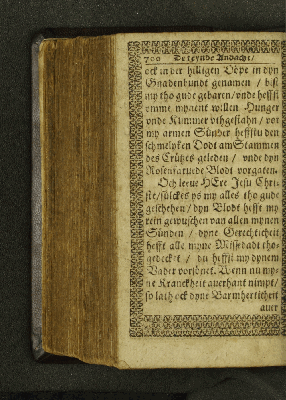 700 De teynde Andacht /
ock in der hilligen Döpe in dyn
Gnadenbundt genamen / bist
my tho gude gebaren / vnde heffst
vmme mynent willen Hunger
vnde Kummer vthgestahn / vor
my armen Sünder heffstu den
schmelyken Dodt am Stammen
des Crützes geleden / vnde dyn
Rosenfarwede Blodt vorgaten.
Och leeve HErr Jesu Chri-
ste / sülckes ys my alles tho gude
geschehen / dyn Blodt hefft my
rein gewuschen van allen mynen
Sünden / dyne Gerechticheit
hefft alle myne Missedadt tho-
gedecket / du heffst my dynem
Vader vorsönet. Wenn nu my-
ne Kranckheit averhant nimpt /
so lath ock dyne Barmherticheit
aver